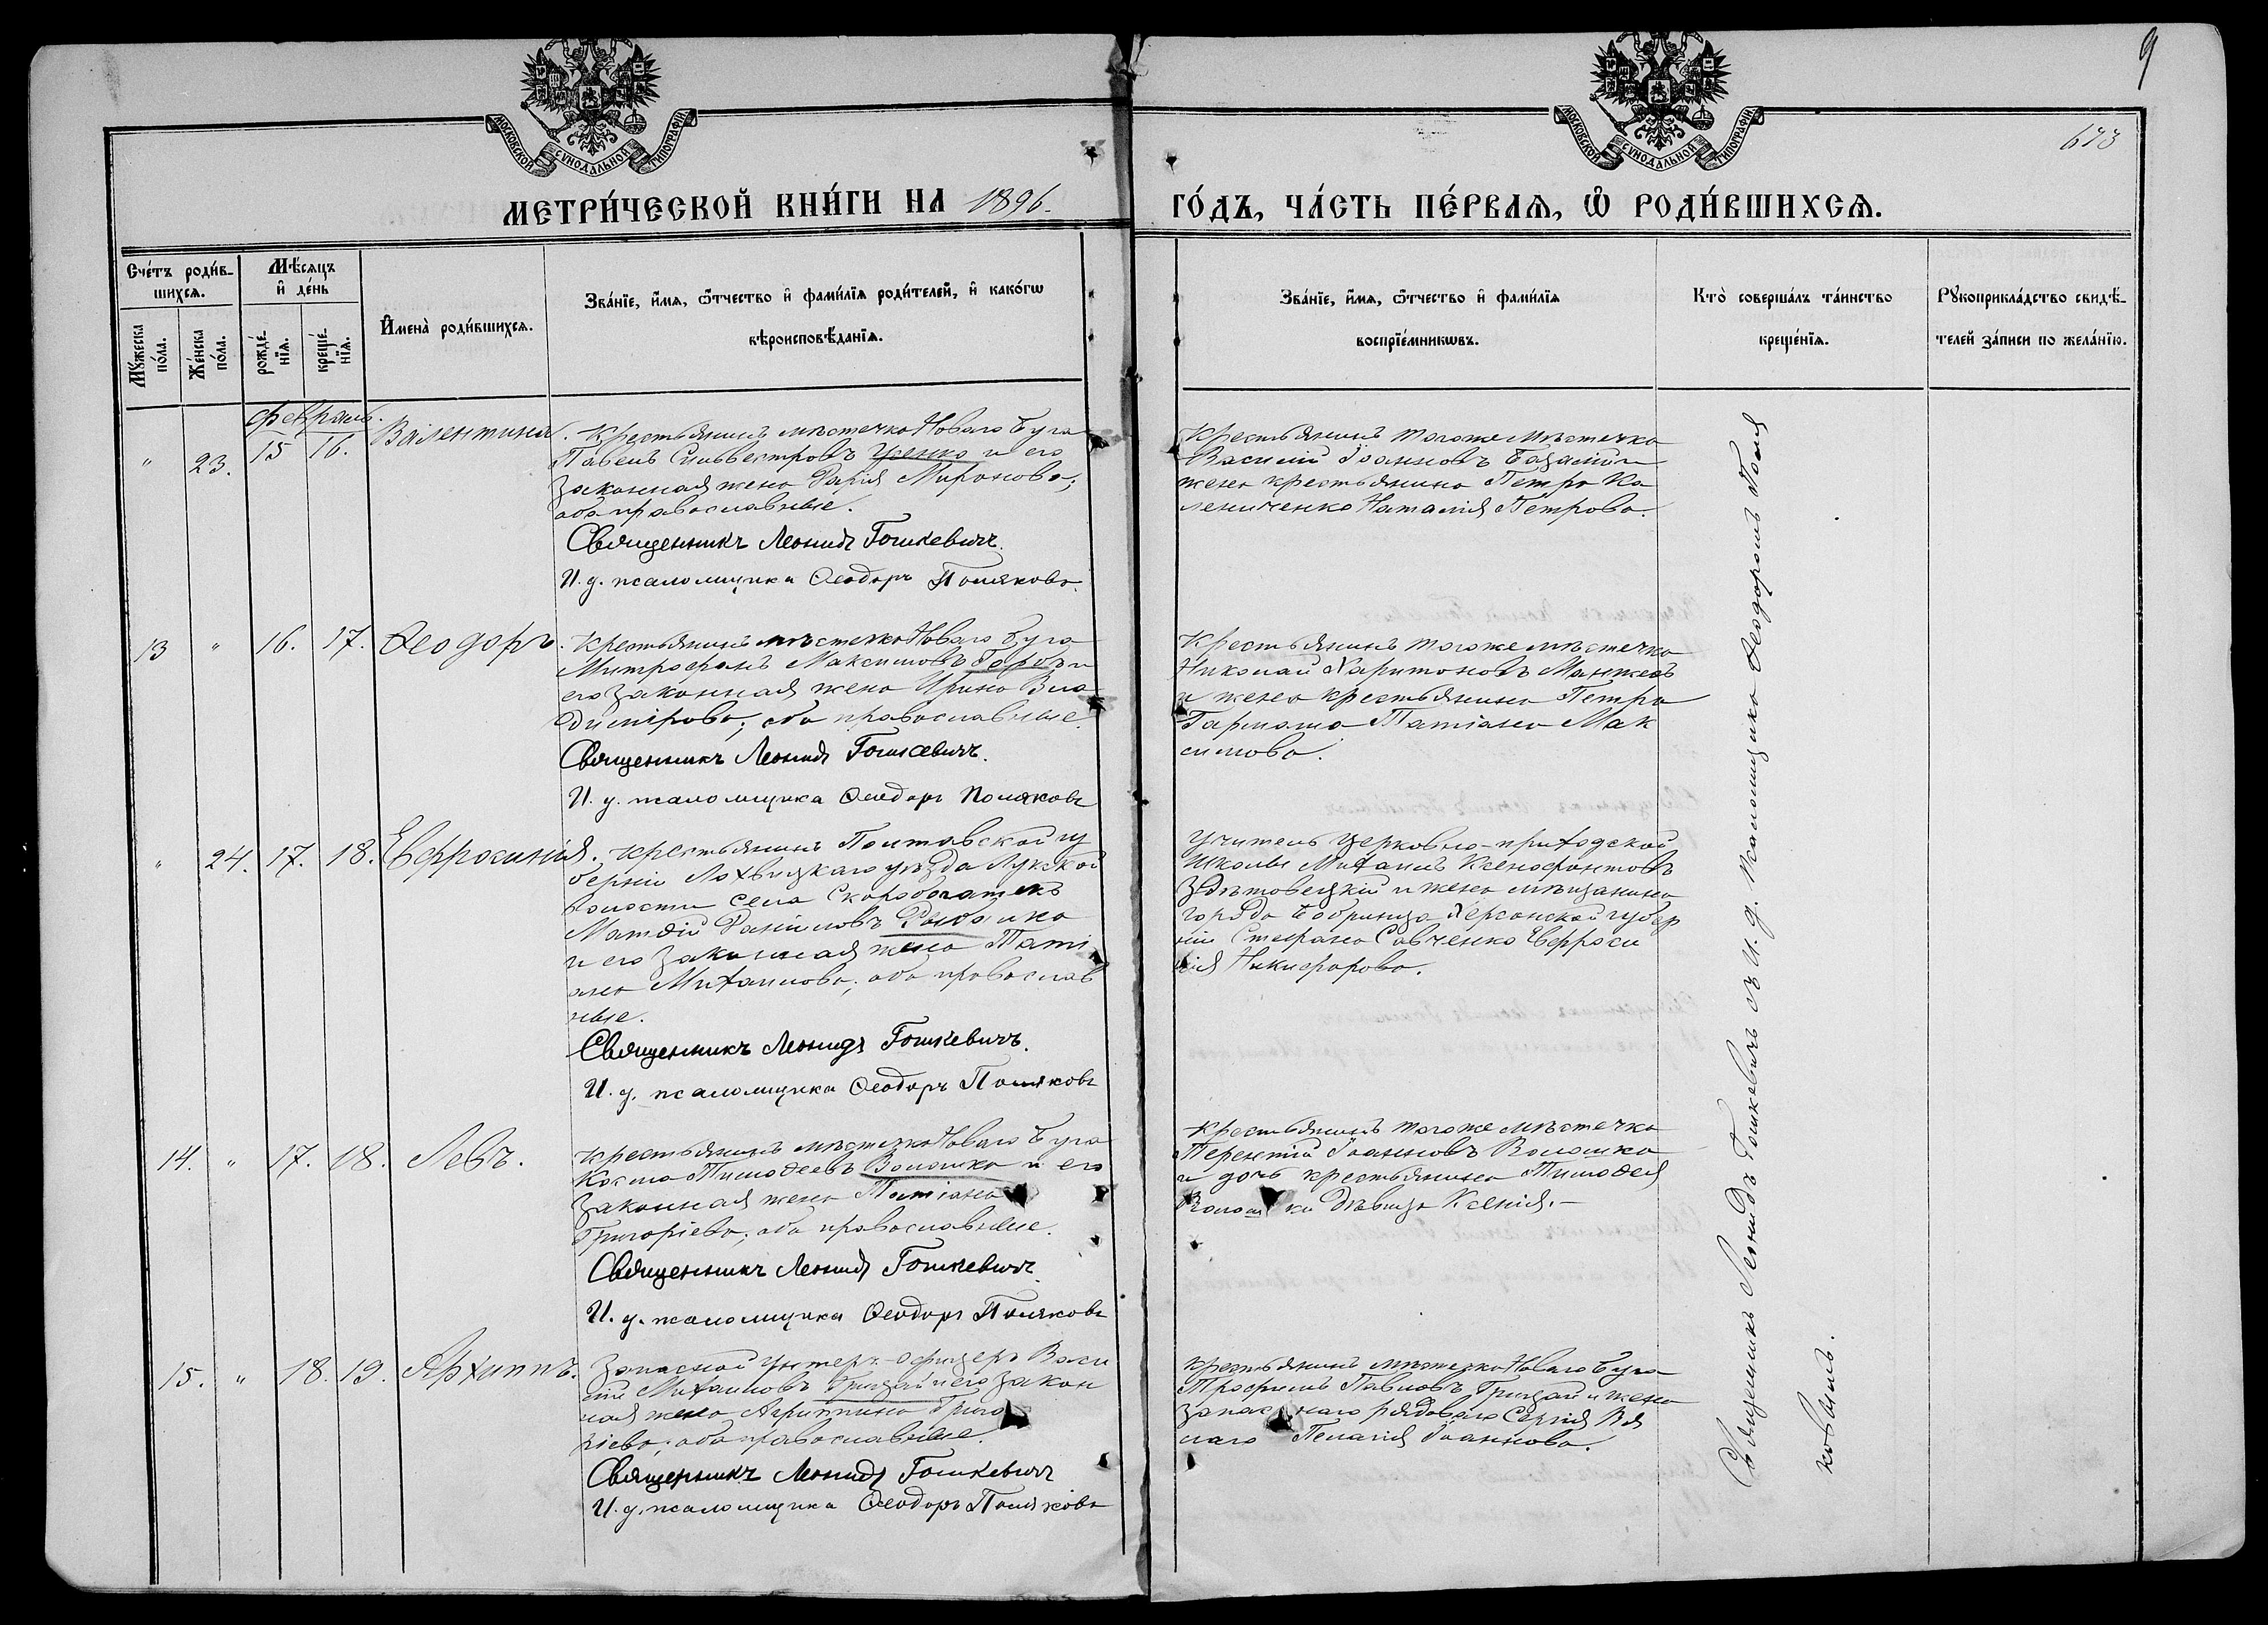 9
673
МОСКОВСКОЙ СѴНОДАЛЬНОЙ ТИПОГРАФІИ
МОСКОВСКОЙ СѴНОДАЛЬНОЙ ТИПОГРАФІИ
МЕТРИ́ЧЕСКОЙ КНИ́ГИ НА 1896.
ГО́ДЪ, ЧА́СТЬ ПЕ́РВАѦ, Ѽ РОДИ́ВШИХСѦ.
Сче́тъ роди́в-
шихсѧ.
Мѣ́сѧцъ
и҆ де́нь
Мꙋ́жеска
по́ла.
Же́нска
по́ла.
рожде́-
нїѧ.
креще́-
нїѧ.
И҆мена̀ роди́вшихсѧ.
Зва́нїе, и҆́мѧ, ѻ҆́тчество и҆ фами́лїѧ роди́телей, и҆ како́гѡ
вѣроисповѣ́данїѧ.
Зва́нїе, и҆́мѧ, ѻ҆́тчество и҆ фами́лїѧ
воспрїе́мникѡвъ.
Кто̀ соверша́лъ та́инство
креще́нїѧ.
Рꙋкоприкла́дство свидѣ́-
телей за́писи по жела́нїю.
Февраль.
" 23. 15 16. Валентина.
Крестьянинъ мѣстечка Новаго Буга
Павелъ Сильвестровъ Усенко и его
законная жена Дарія Миронова;
оба православные.
Священникъ Леонидъ Гошкевичъ.
И. д. псаломщика Ѳеодоръ Поляковъ.
Крестьянинъ тогоже мѣстечка
Василій Іоанновъ и
жена крестьянина Петра Ка
лениченко Наталія Петрова.
13 " 16. 17. Ѳеодоръ.
Крестьянинъ мѣстечка Новаго Буга
Митрофанъ Максимовъ и
его законная жена Ирина Вла
димірова; оба православные.
Священникъ Леонидъ Гошкевичъ.
И. д. псаломщика Ѳеодоръ Поляковъ
Крестьянинъ тогоже мѣстечка
Николай Харитоновъ
и жена крестьянина Петра
Гармаша Татіана Мак
симова.
" 24. 17. 18. Евфросинія.
крестьянинъ Полтавской гу
берніи Лохвицкаго уѣзда Лукской
волости села Скоробогатекъ
Матѳій Даніиловъ
и его законная жена Таті
ана Михаилова; оба православ
ные.
Священникъ Леонидъ Гошкевичъ.
И. д. псаломщика Ѳеодоръ Поляковъ
Учитель церковно-приходской
школы Михаилъ Ксенофонтовъ
и жена мѣщанина
города Бобринца Херсонской губер
ніи Стефана Савченко Евфроси
нія Никифорова.
14. " 17. 18. Левъ.
крестьянинъ мѣстечка Новаго Буга
Косма Тимоѳеевъ Волошко и его
законная жена Татіана
Григорьева; оба православные.
Священникъ Леонидъ Гошкевичъ.
И. д. псаломщика Ѳеодоръ Поляковъ
крестьянинъ тогоже мѣстечка
Терентій Іоанновъ Волошко
и дочь крестьянина Тимоѳея
Волошки дѣвица Ксенія.—
15. " 18. 19. Архиппъ.
Запасной унтеръ-офицеръ Васи
лій Михаиловъ Грицай и его закон
ная жена Агриппина Григо
ріева; оба православные.
Священникъ Леонидъ Гошкевичъ
И. д. псаломщика Ѳеодоръ Поляковъ
крестьянинъ мѣстечка Новаго Буга
Трофимъ Павловъ Грицай и жена
запаснаго рядового Сергія
Пелагія Іоаннова.
Священникъ Леонидъ Гошкевичъ съ и. д. псаломщика Ѳеодоромъ Поля
ковымъ.